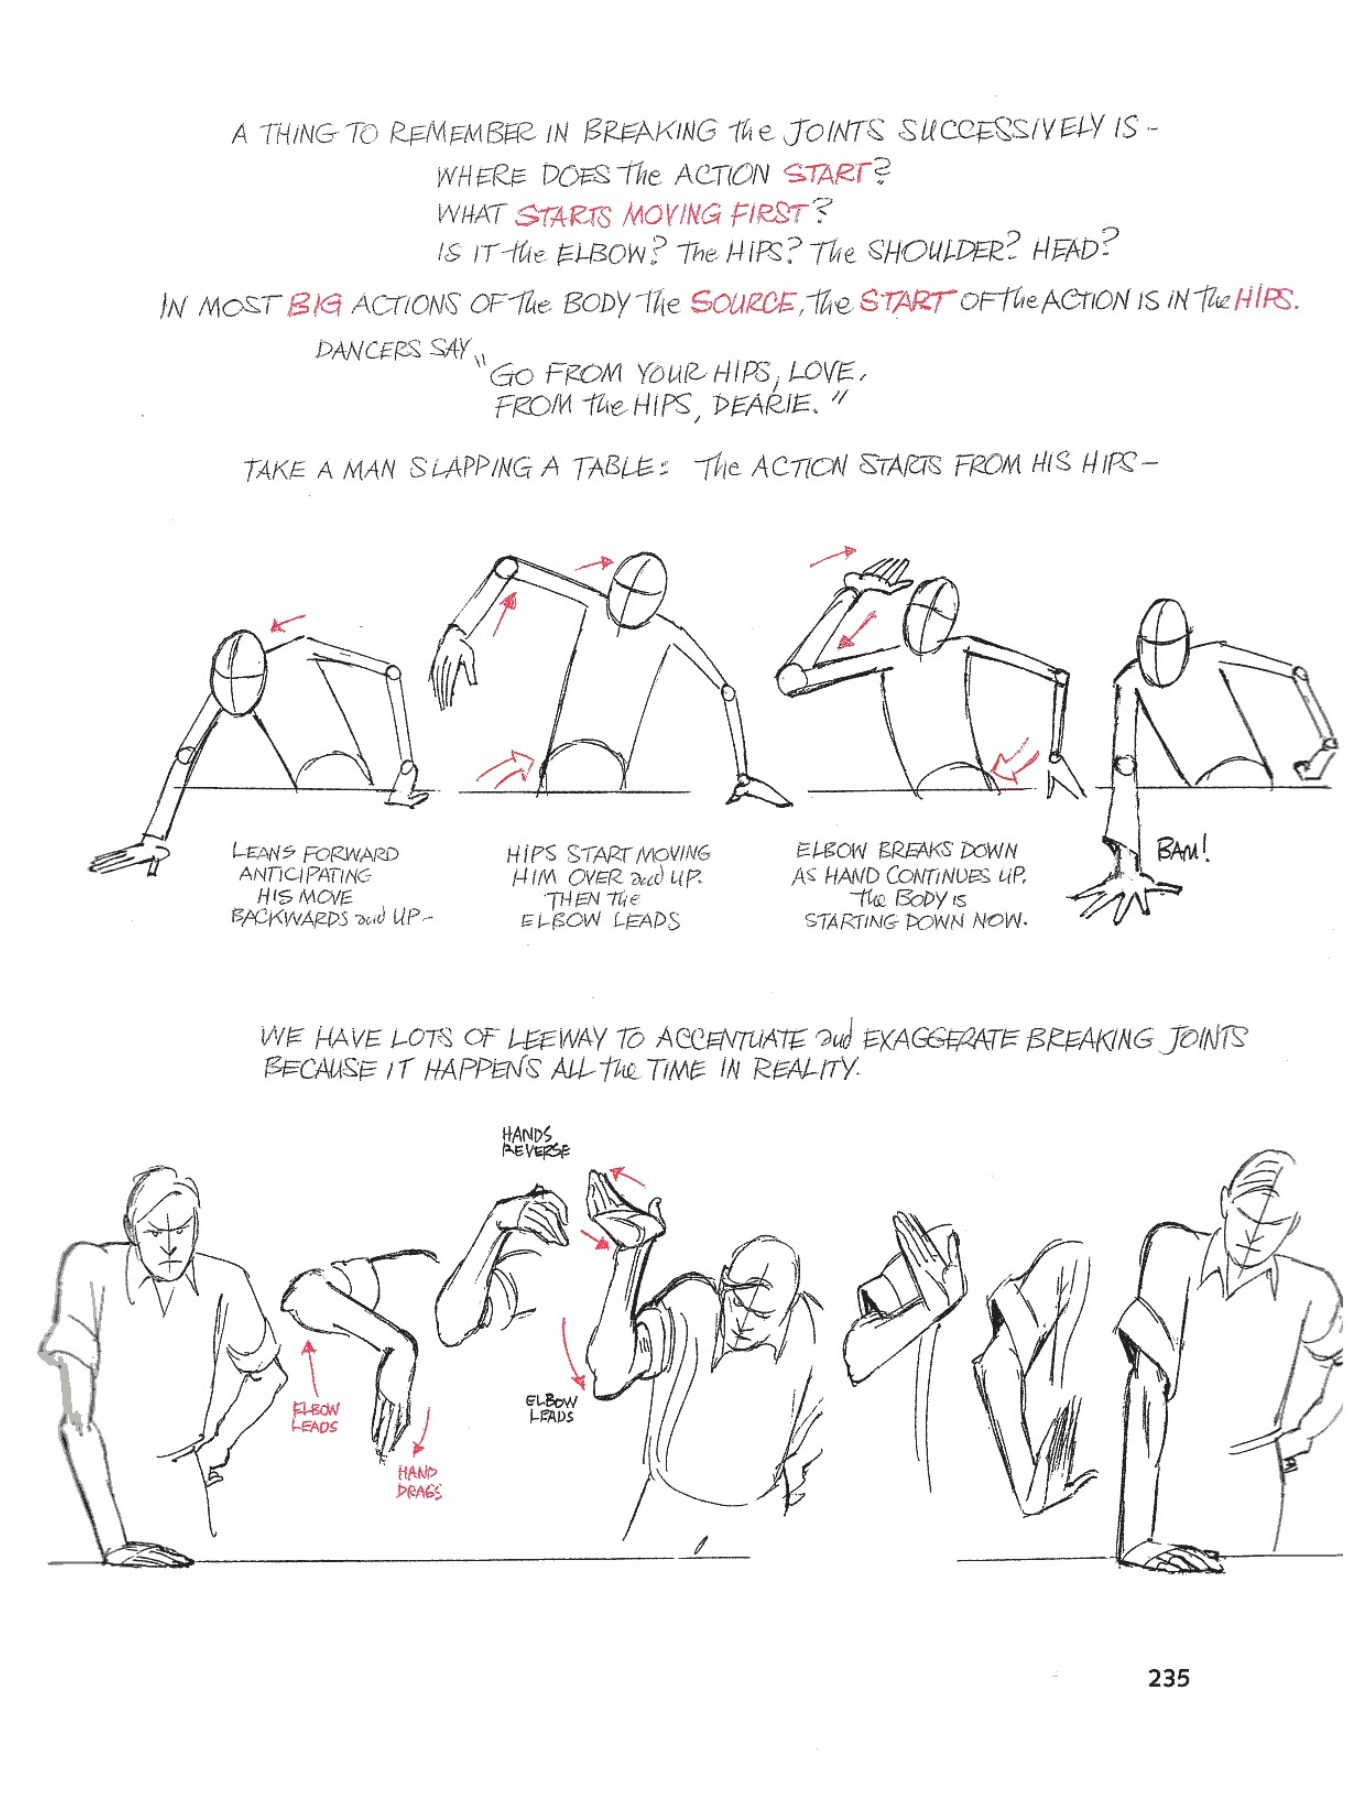 A THING TO REMEMBER IN BREAKING the JOINTS SUCCESSIVELY IS -
WHERE DOES the ACTION START?
WHAT STARTS MOVING FIRST?
IS IT the ELBOW? The HIPS? The SHOULDER? HEAD?
IN MOST BIG ACTIONS OF the BODY the SOURCE, the START OF the ACTION IS IN the HIPS.
DANCERS SAY
"GO FROM YOUR HIPS, LOVE.
FROM the HIPS, DEARIE."
TAKE A MAN SLAPPING A TABLE: The ACTION STARTS FROM HIS HIPS -
LEANS FORWARD
ANTICIPATING
HIS MOVE
BACKWARDS and UP -
HIPS START MOVING
HIM OVER and UP.
THEN THE
ELBOW LEADS
ELBOW BREAKS DOWN
AS HAND CONTINUES UP.
the BODY IS
STARTING DOWN NOW.
BAM!
WE HAVE LOTS OF LEEWAY TO ACCENTUATE and EXAGGERATE BREAKING JOINTS
BECAUSE IT HAPPENS ALL the TIME IN REALITY.
HANDS
REVERSE
ELBOW
LEADS
HAND
DRAGS
ELBOW
LEADS
235